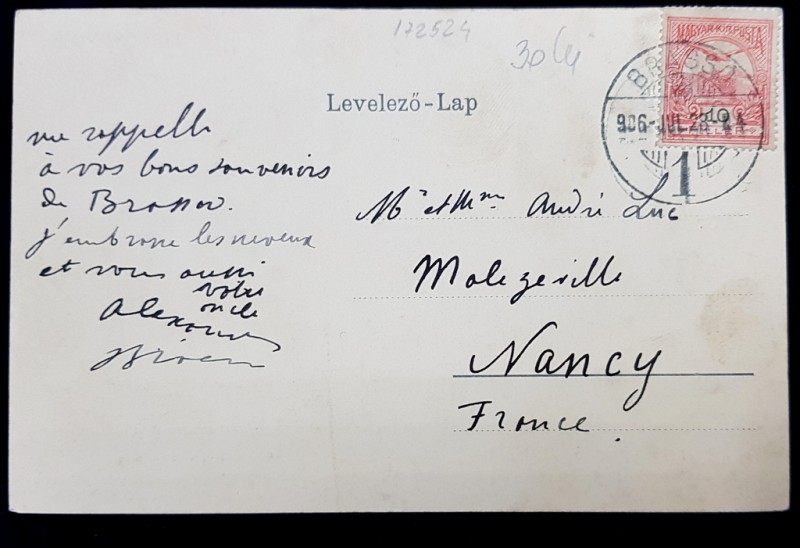 172524
30 lei
MAGYAR KIR. POSTA
BRASSÓ
10
906-JUL.28
1
Levelező-Lap
me rappelle
à vos bons souvenirs
de Brassov.
j'embrasse les neveux
et vous aussi
votre
oncle
Mr et Mme André Luc
Malzeville
Nancy
France.